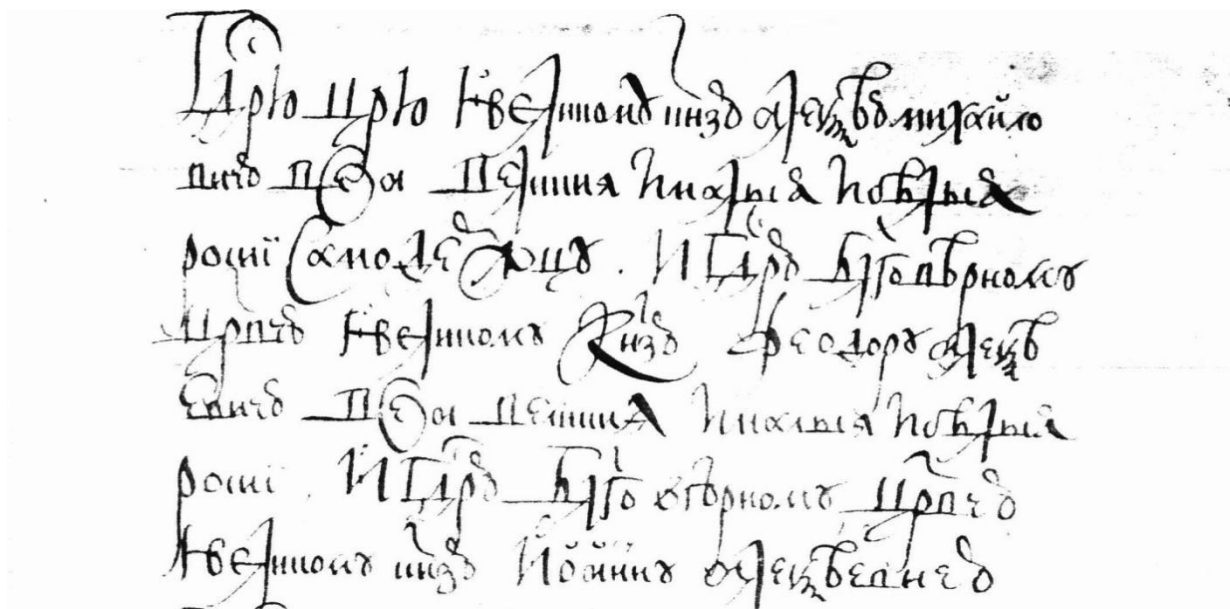 Гдрю црю и великому кнзю алеѯѣю михайло
вичю всеа великия и малыя и бѣлыя
росиї самодержцу . и гдрю блговѣрному
црвчю и великому кнзю феодору алеѯѣ
евичю всеа великия и малыя и бѣлыя
росиї . и гдрю блговѣрному црвчю
и великому кнзю иоанну алеѯѣевичю